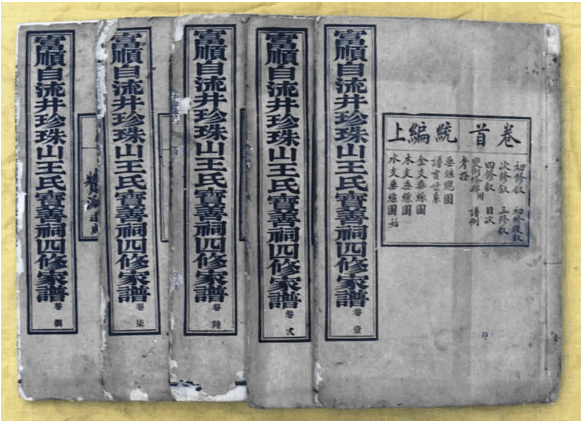 富順自流井珍珠山王氏寳善祠四修家譜 卷壹
卷首 統編上
初修叙 初修後叙
次修叙 三修叙
四修叙 目次
譜例
考證
譜首世系
金支垂絲圖
木支垂絲圖
水支垂絲圖始
富順自流井珍珠山王氏寳善祠四修家譜 卷弍
富順自流井珍珠山王氏寳善祠四修家譜 卷陸
富順自流井珍珠山王氏寳善祠四修家譜 卷柒
富順自流井珍珠山王氏寳善祠四修家譜 卷捌